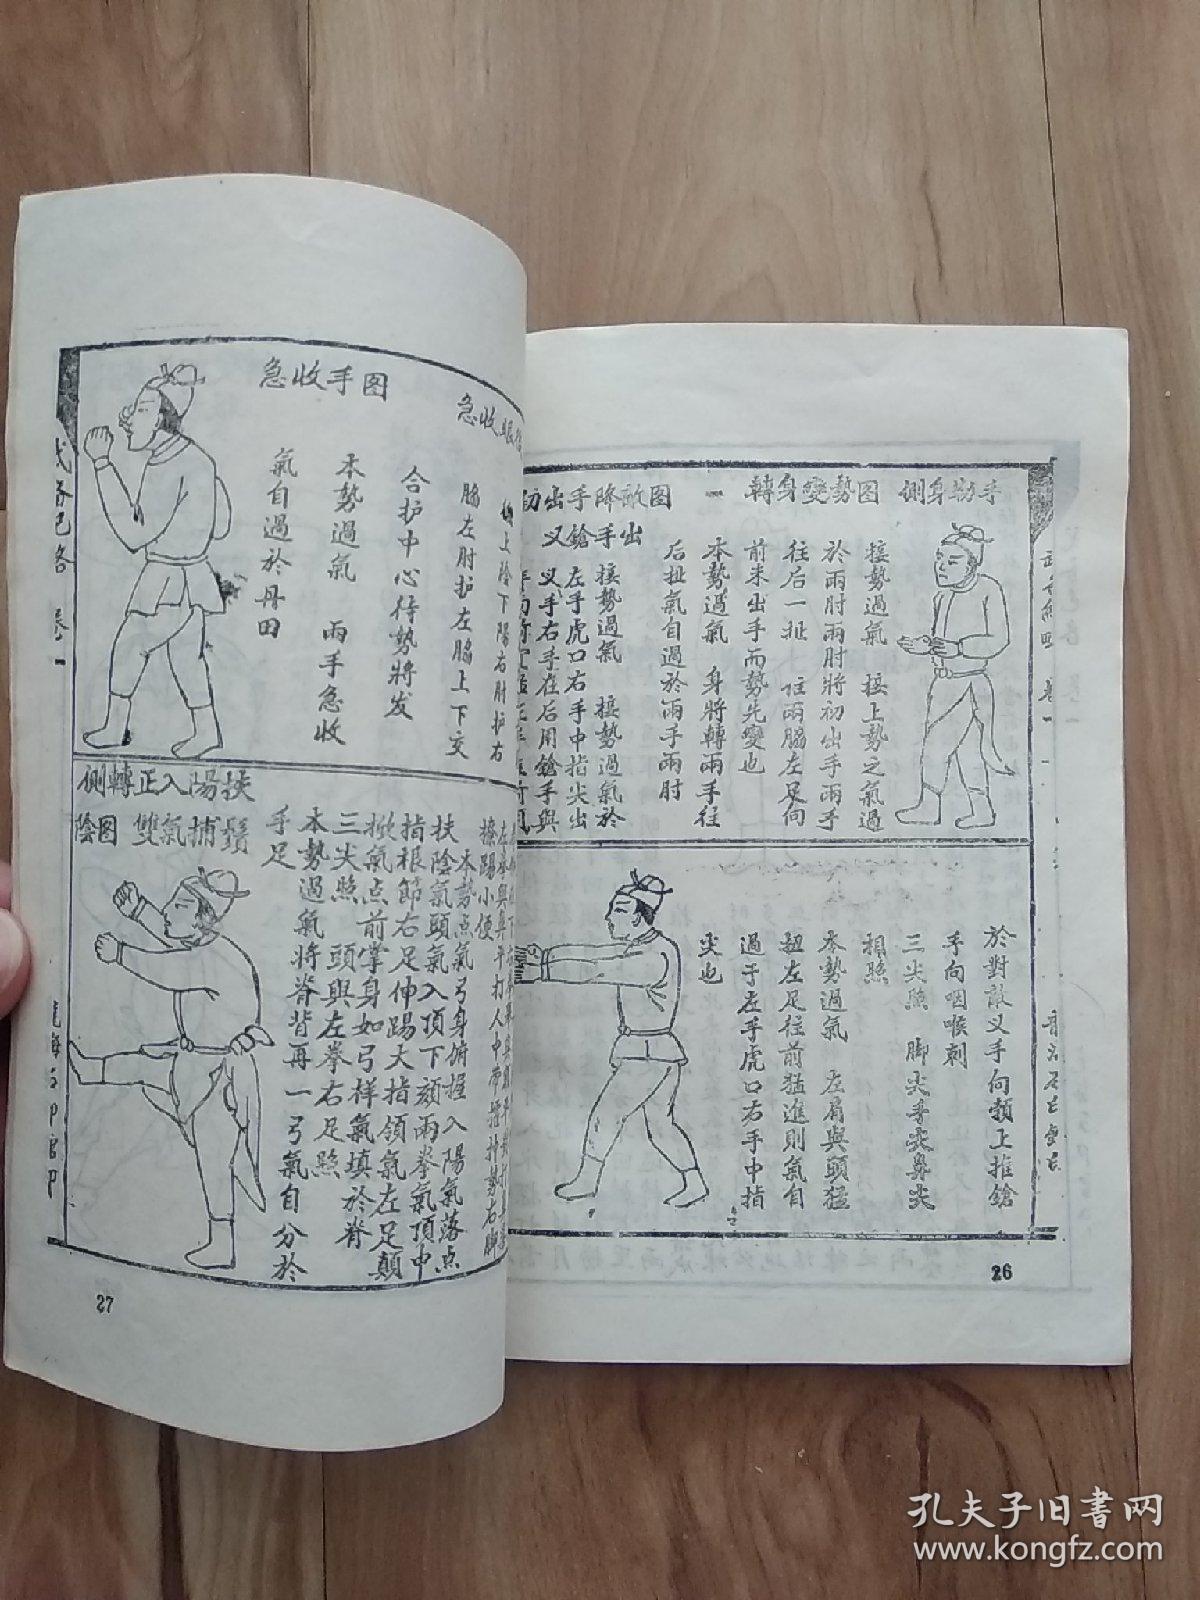 側身劫手
轉身變勢图
接勢過氣　接上勢之氣過
於兩肘兩肘將初出手兩手
往后一扯　往兩腸左足向
前来出手而勢先變也
本勢過氣　身將轉兩手往
后扯氣自過於兩手兩肘
一
初出手降敵图
义鎗手出
接勢過氣　接勢過氣於
左手虎口右手中指尖出
义手右手在后用鎗手與
於對敵义手向顇上推鎗
手向咽喉刺
三尖照　脚尖手尖鼻尖
相照
本勢過氣　左肩與頭猛
扭左足往前猛進則氣自
過于左手虎口右手中指
尖也
26
急收
上陰下陽右肘护右
脇左肘护左脇上下交
合护中心待勢將发
急收手图
本勢過氣　兩手急收
氣自過於丹田
卷一
側轉正入陽扶
陰图　雙氣捕鬚
左拳與鼻平打人中
擦踢小便
本勢点氣弓身俯握入陽氣落点
扶陰氣頭氣入頂下頦兩拳氣頂中
指根節右足伸踢大指領氣左足顛
掀氣点前掌身如弓样氣填於脊
三尖照　頭與左拳右足照
本勢過氣將脊背再一弓氣自分於
手足
27
孔夫子旧书网
www.kongfz.com